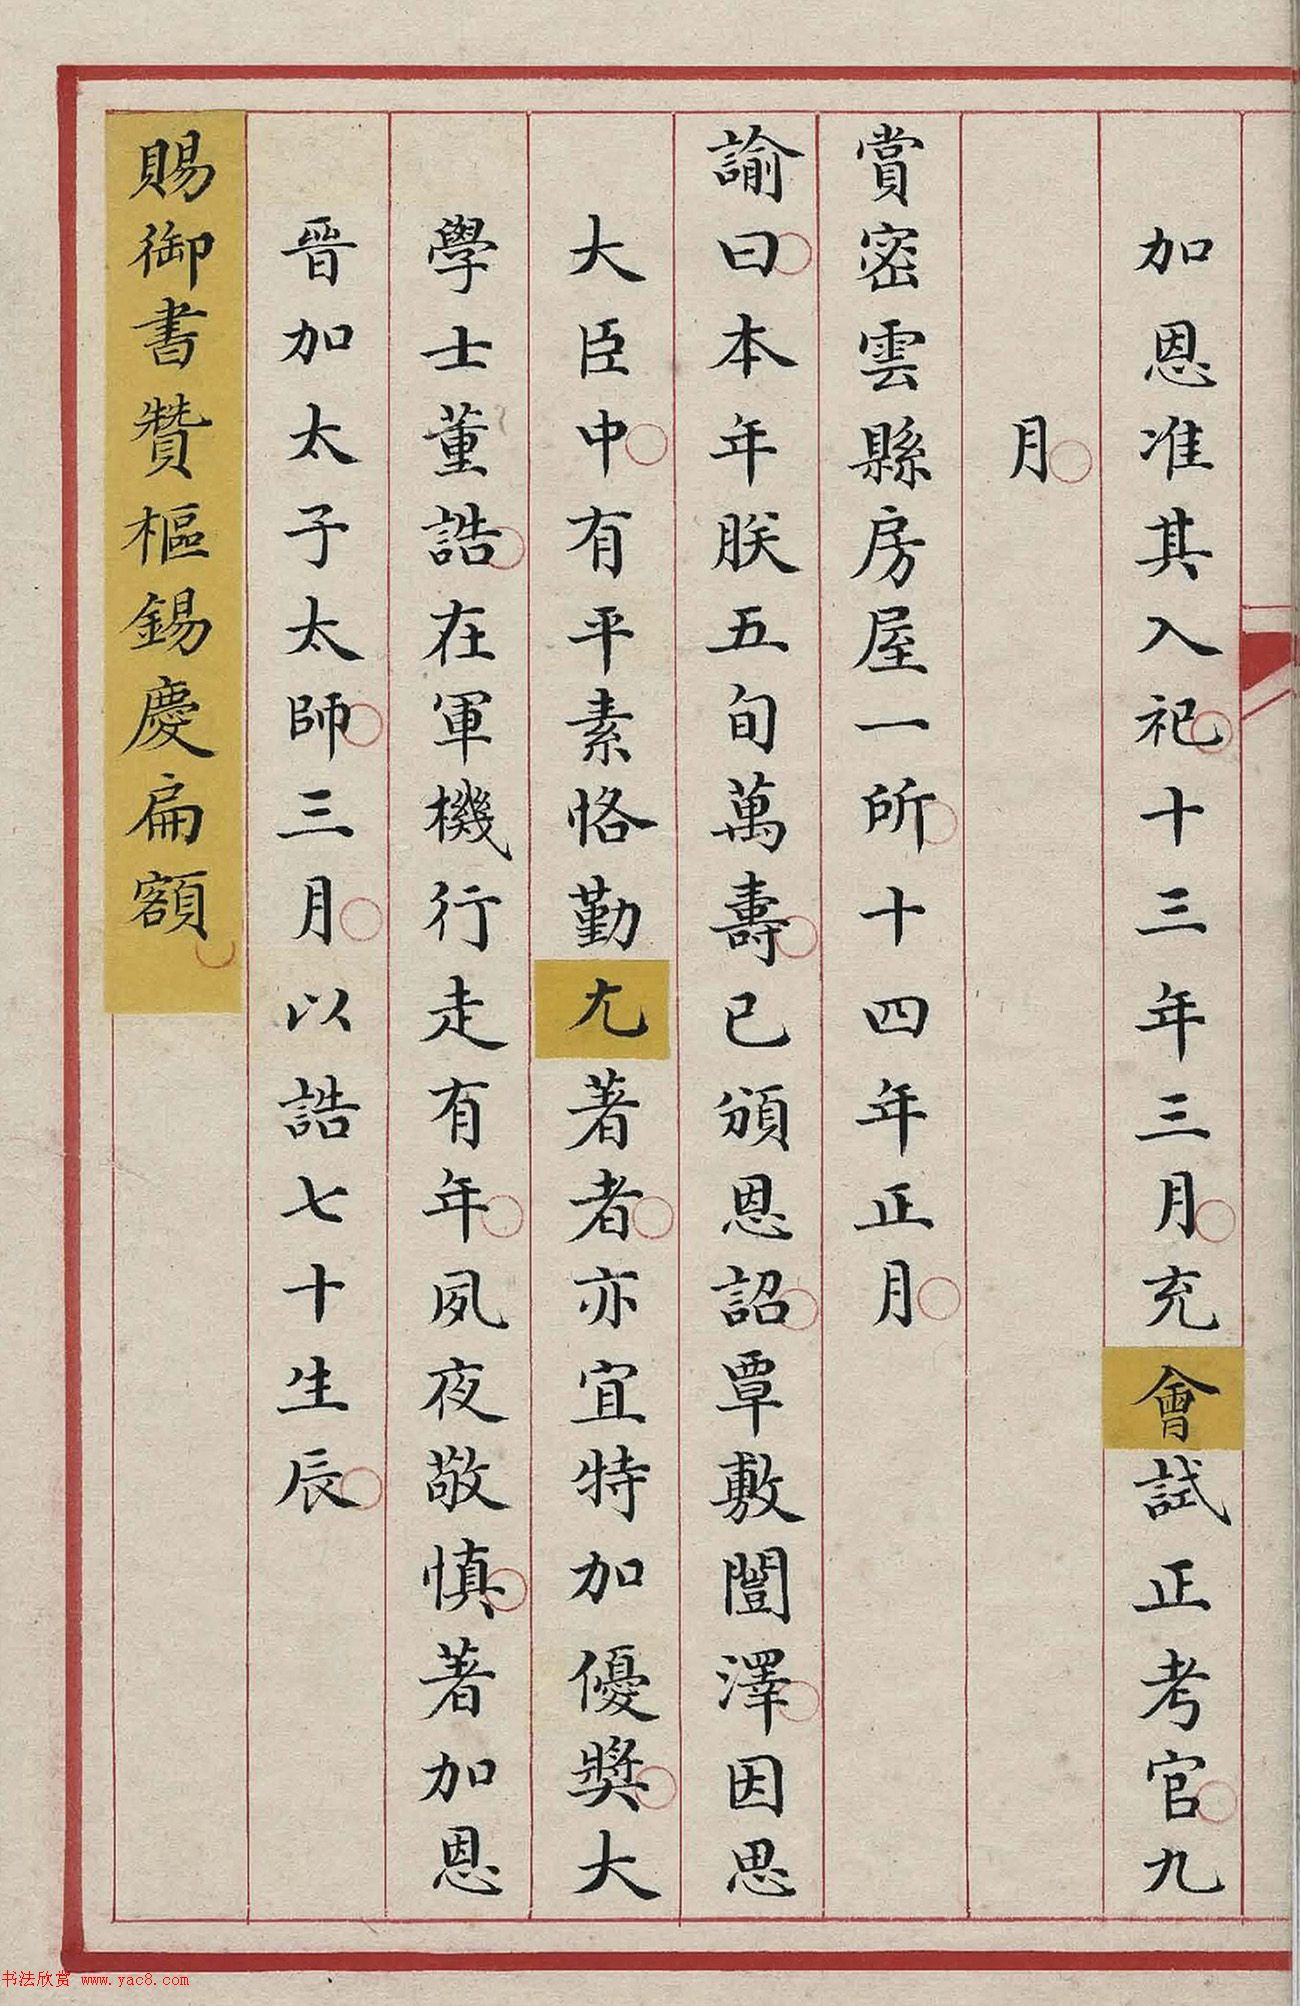 加恩准其入祀十三年三月充會試正考官九
月
賞密雲縣房屋一所十四年正月
諭曰本年朕五旬萬壽已頒恩詔覃敷闓澤因思
大臣中有平素恪勤尤著者亦宜特加優獎大
學士董誥在軍機行走有年夙夜敬慎著加恩
晉加太子太師三月以誥七十生辰
賜御書贊樞錫慶扁額
书法欣赏 www.yac8.com